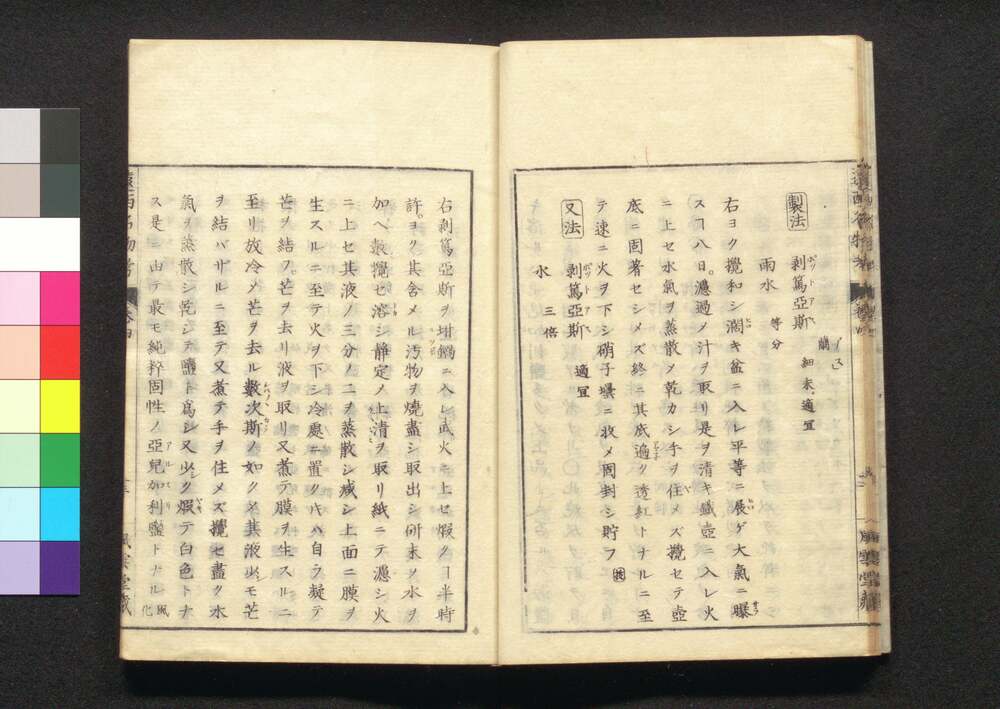 製法
剥篤亞斯 細末、適宜
雨水 等分
右ヨク攪和シ濶キ盆ニ入レ平等ニ展ゲ大氣ニ曝
スヿ八日。濾過メ汁ヲ取リ是ヲ清キ鐵壺ニ入レ火
ニ上セ水氣ヲ蒸散メ乾カシ手ヲ住メズ攪セテ壺
底ニ固著セシメズ終ニ其底遍ク透紅トナルニ至
テ速ニ火ヲ下シ硝子壜ニ收メ固封シ貯フ
又法
剥篤亞斯 適宜
水 三倍
右剥篤亞斯ヲ坩堝ニ入レ武火ニ上セ煆クヿ半時
許。ヨク其含メル汚物ヲ燒盡シ取出シ研末メ水ヲ
加ヘ數攪セ溶シ靜定メ上清ヲ取リ紙ニテ濾シ火
ニ上セ其液ノ三分ノ二ヲ蒸散シ減シ上面ニ膜ヲ
生スルニ至テ火ヲ下シ冷處ニ置クキハ自ラ凝テ
芒ヲ結フ。芒ヲ去リ液ヲ取リ又煮テ膜ヲ生スルニ
至リ放冷メ芒ヲ去ル數次斯ノ如クメ其液少シモ芒
ヲ結バザルニ至テ又煮テ手ヲ住メズ攪セ盡ク水
氣ヲ蒸散シ乾シテ鹽ト爲シ又少ク煆テ白色トナ
ス是ニ由テ最モ純粹固性ノ亞兒加利鹽トナル風化
遠西名物考 卷四